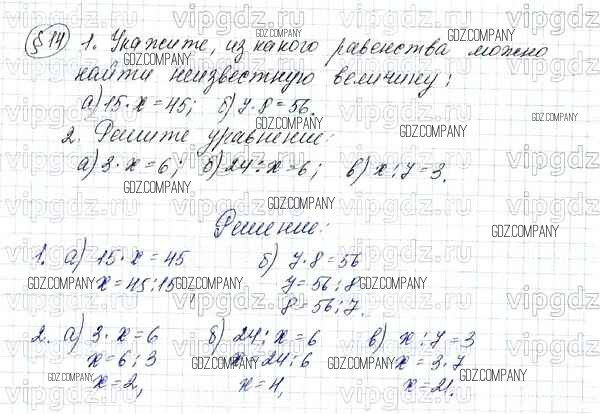 §14 1. Укажите, из какого равенства можно
найти неизвестную величину:
а) 15·x=45; б) y·8=56.
2. Решите уравнение:
а) 3·x=6; б) 24:x=6; в) x:7=3.
Решение:
1. а) 15·x=45 б) y·8=56
x=45:15 y=56:8
8=56:7.
2. а) 3·x=6 б) 24:x=6 в) x:7=3
x=6:3 x=24:6 x=3·7
x=2, x=4, x=21.